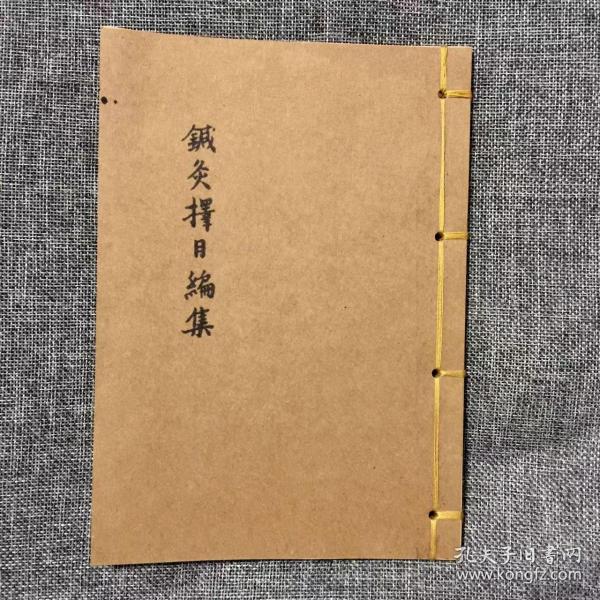 鍼灸擇日編集
孔夫子旧書网
www.kongfz.com